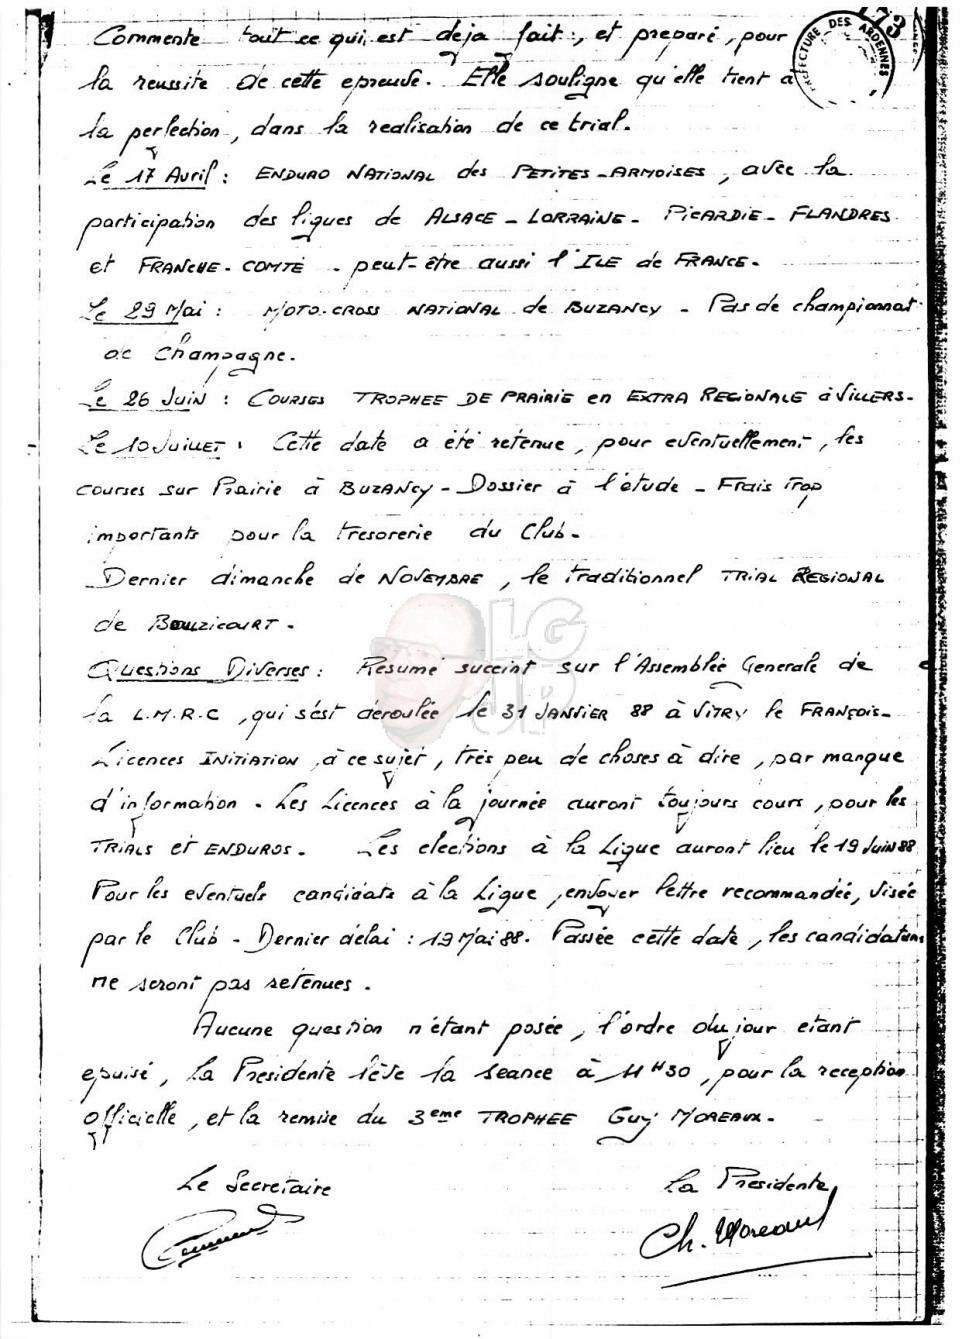 173
PREFECTURE DES ARDENNES
Commente tout ce qui est deja fait, et preparé, pour
la reussite de cette epreuve. Elle souligne qu'elle tient à
la perfection, dans la realisation de ce trial.
Le 17 Avril : ENDURO NATIONAL des PETITES-ARMOISES, avec la
participation des ligues de ALSACE - LORRAINE - PICARDIE - FLANDRES
et FRANCHE-COMTÉ - peut-être aussi l'ILE de FRANCE.
Le 29 Mai : MOTO-CROSS NATIONAL de BUZANCY - Pas de championnat
de Champagne.
Le 26 JUIN : COURSES TROPHEE DE PRAIRIE en EXTRA REGIONALE à VILLERS-
Le 10 JUILLET : Cette date a été retenue, pour eventuellement, les
courses sur Prairie à BUZANCY - Dossier à l'étude - Frais Trop
importants pour la tresorerie du Club.
Dernier dimanche de NOVEMBRE, le traditionnel TRIAL REGIONAL
de BOUZICOURT.
LG JP
Questions Diverses : Resumé succint sur l'Assemblée Generale de
la L.M.R.C, qui s'est deroulée le 31 JANVIER 88 à VITRY le FRANÇOIS-
Licences INITIATION, à ce sujet, très peu de choses à dire, par manque
d'information. Les Licences à la journée auront toujours cours, pour les
TRIALS et ENDUROS. Les elections à la Ligue auront lieu le 19 Juin 88
Pour les eventuels candidats à la Ligue, envoyer lettre recommandée, visée
par le Club - Dernier délai : 19 Mai 88. Passée cette date, les candidatures
ne seront pas retenues.
Aucune question n'étant posée, l'ordre du jour etant
epuisé, la Presidente lève la seance à 11H30, pour la reception
officielle, et la remise du 3eme TROPHEE Guy MOREAUX.
Le Secretaire
La Presidente
Ch. Moreaux